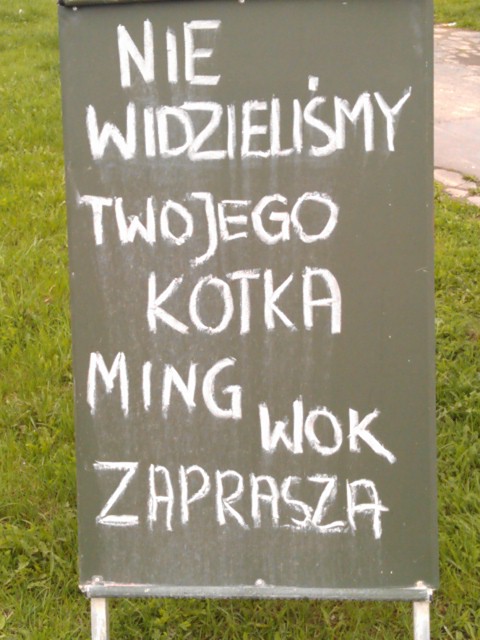 NIE
WIDZIELIŚMY
TWOJEGO
KOTKA
MING WOK
ZAPRASZA